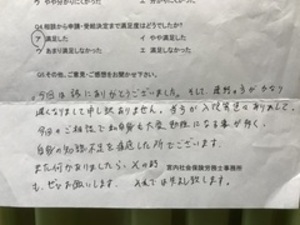 ウ やや分かりにくかった エ 分かりにくかった
Q4.相談から申請・受給決定まで満足度はどうでしたか?
ア 満足した イ やや満足した
ウ あまり満足しなかった エ 満足しなかった
Q5.その他、ご意見・ご感想をお聞かせ下さい。
今回は誠にありがとうございました。そして、
遅くなりまして申し訳ありません。
今回のご相談で私自身も大変勉強になる事が多く、
自身の知識不足を痛感した所でございます。
また何かありましたら、その時
宮内社会保険労務士事務所
も、ぜひお願いします。失礼致します。